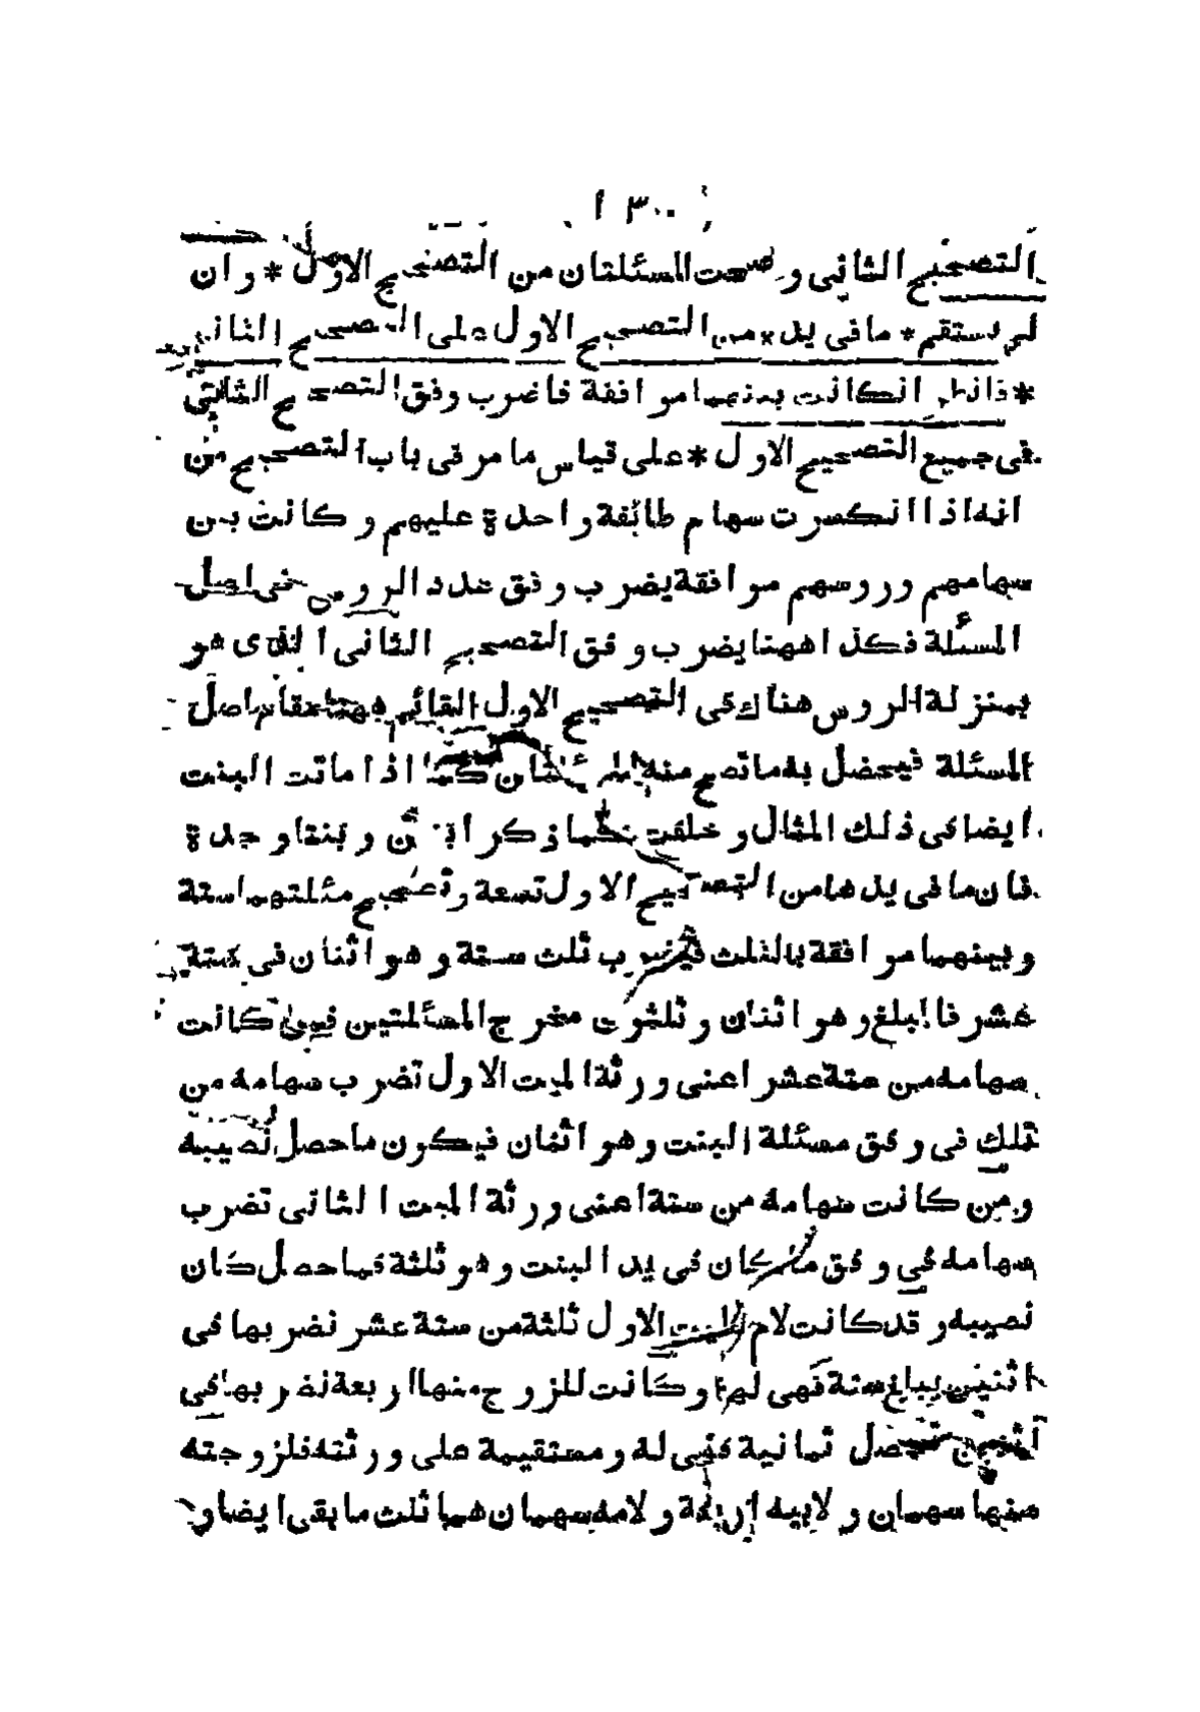 ١٣٠
التصحيح الثاني وصحت المسئلتان من التصحيح الاول * وان
لم يستقم * ما في يده من التصحيح الاول على التصحيح الثاني
* فانظر ان كانت بينهما موافقة فاضرب وفق التصحيح الثاني
في جميع التصحيح الاول * على قياس ما مر في باب التصحيح من
انه اذا انكسرت سهام طائفة واحدة عليهم وكانت بين
سهامهم وروسهم موافقة يضرب وفق عدد الروس في اصل
المسئلة فكذا ههنا يضرب وفق التصحيح الثاني الذي هو
بمنزلة الروس هناك في التصحيح الاول القائم ههنا مقام اصل
المسئلة فيحصل به ما تصح منه المسئلتان كما اذا ماتت البنت
ايضا في ذلك المثال وخلفت كما ذكر ابنين وبنتا وجدة
فان ما في يدها من التصحيح الاول تسعة وتصحيح مسئلتهما ستة
وبينهما موافقة بالثلث فيضرب ثلث ستة وهو اثنان في ستة
عشر فالمبلغ وهو اثنان وثلثون مخرج المسئلتين فمن كانت
سهامه من ستة عشر اعني ورثة الميت الاول تضرب سهامه من
تلك في وفق مسئلة البنت وهو اثنان فيكون ما حصل نصيبه
ومن كانت سهامه من ستة اعني ورثة الميت الثاني تضرب
سهامه في وفق ما كان في يد البنت وهو ثلثة فما حصل كان
نصيبه وقد كانت لام الميت الاول ثلثة من ستة عشر نضربها في
اثنين يبلغ ستة فهي لها وكانت للزوج منها اربعة نضربها في
اثنين تحصل ثمانية فهي له ومستقيمة على ورثته فلزوجته
منها سهمان ولابيه اربعة ولامه سهمان هما ثلث ما بقى ايضا و